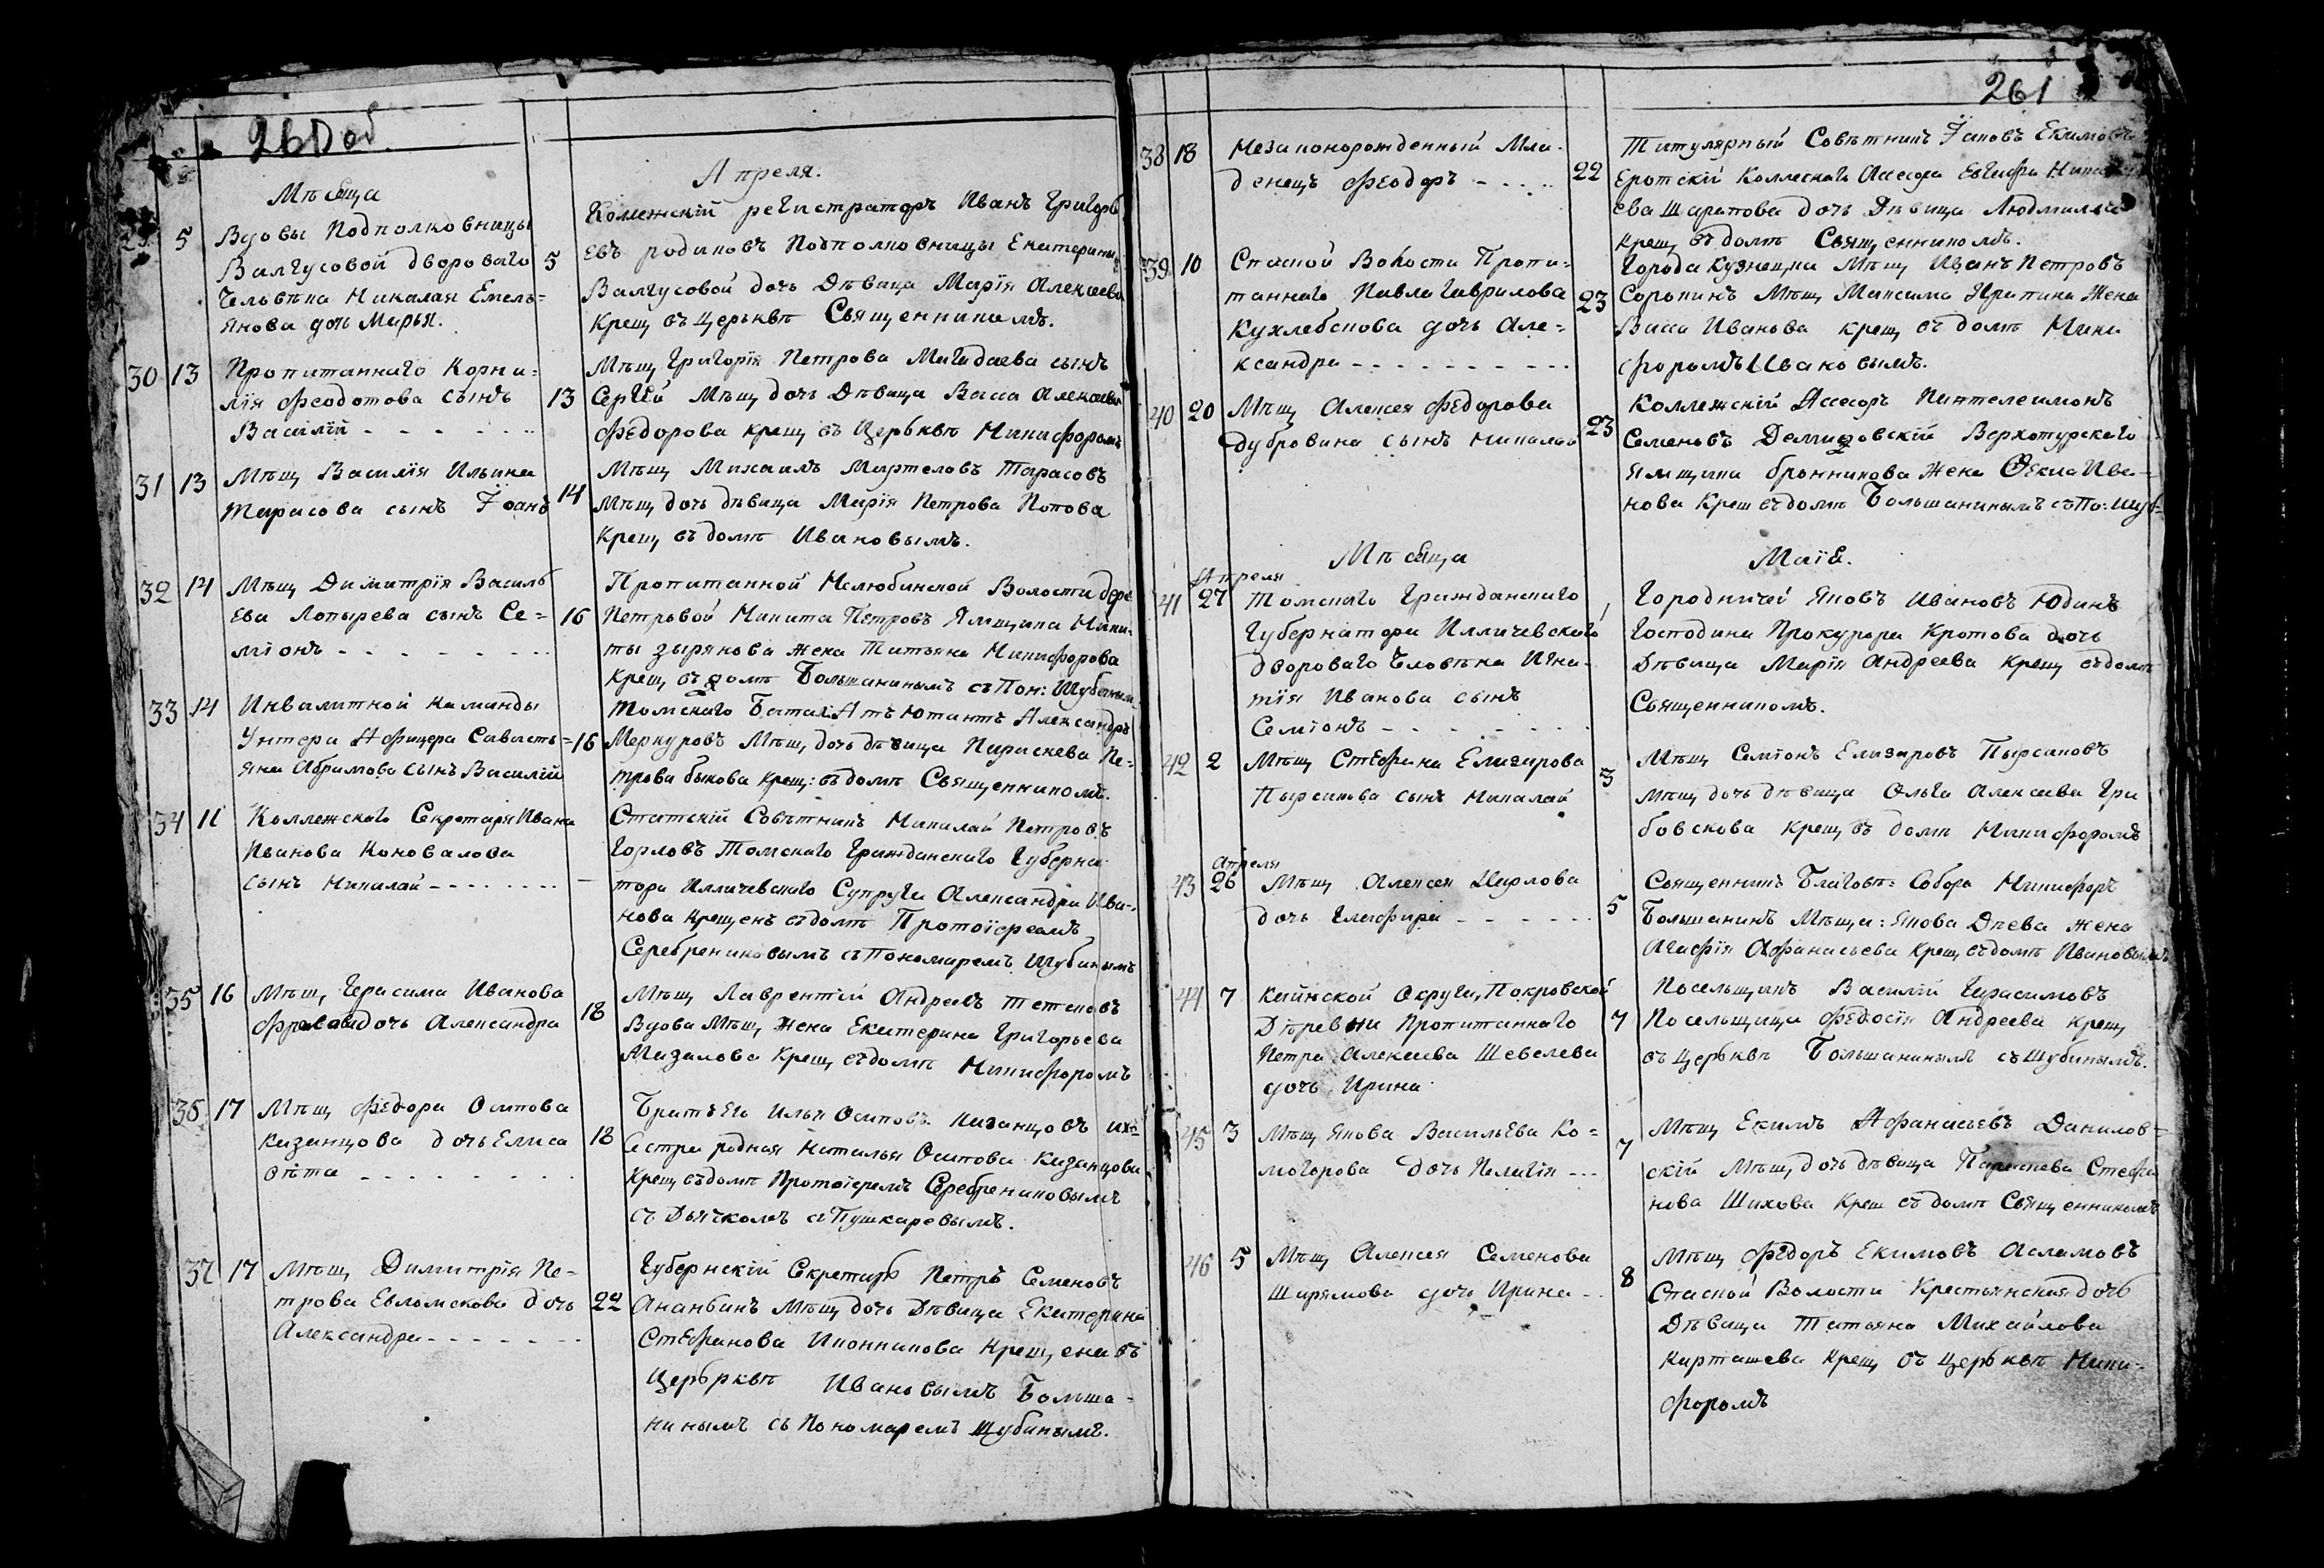 260 об.
Мѣсяца
Апреля.
29 5 Вдовы Подполковницы
Валгусовой двороваго
Человѣка Николая Емель=
янова дочь Марья.
5 Колежскій регистраторъ Иванъ Григорь
евъ родиковъ Подполковницы Екатерины
Валгусовой дочь Дѣвица Марія Алексеева
Крещ въ Церьквѣ Священникомъ.
30 13 Пропитаннаго Корни=
лія Феодотова сынъ
Василій
13 Мѣщ Григорія Петрова сынъ
Сергѣй Мѣщ дочь Дѣвица Васса Алексеева
Федорова Крещ въ Церьквѣ Никифоромъ
31 13 Мѣщ Василія Ильина
Тарасова сынъ Іоанъ
14 Мѣщ Михаилъ Тарасовъ
Мѣщ дочь дѣвица Марія Петрова Попова
Крещ въ домѣ Ивановымъ.
32 14 Мѣщ Димитрія Василь
ева Лопырева сынъ Се=
міонъ
16 Пропитанной Нелюбинской Волости дере
Петрьвой Никита Петровъ Ямщика Ники=
ты зырянова жена Татьяна Никифорова
Крещ въ домѣ Большанинымъ съ Пон: Шубинымъ
33 14 Инвалитной каманды
Унтера Афицера Савасть=
яна Абрамова сынъ Василій
16 Томскаго Батал: Атъютантъ Александръ
Меркуровъ Мѣщ дочь дѣвица Параскева Пе=
трова быкова крещ: въ домѣ Священникомъ.
34 11 Коллежскаго Секретаря Ивана
Иванова Коновалова
сынъ Николай
Статскій Совѣтникъ Николай Петровъ
Горловъ Томскаго Гражданскаго Губерна
тора Илличевскаго Супруга Александра Ива=
нова крещенъ въ домѣ Протоіереомъ
Серебрениковымъ съ Пономаремъ Шубинымъ
35 16 Мѣщ Герасима Иванова
дочь Александра
18 Мѣщ Лаврентій Андреевъ тетеновъ
Вдова Мѣщ Жена Екатерина Григорьева
Мазалова Крещ въ домѣ Никифоромъ
36 17 Мѣщ Федора Осипова
казанцова дочь Елиса
вѣта
18 Братъ Его Илья Осиповъ казанцовъ ихъ
Сестра родная Наталья Осипова Казанцова
Крещ въ домѣ Протоіеремъ Серебрениковымъ
съ Дьячкомъ съ Пушкаревымъ.
37 17 Мѣщ Димитрія Пе-
трова Евломскова дочь
Александра
22 Губернскій Секретарь Петръ Семеновъ
Ананьинъ Мѣщ дочь Дѣвица Екатерина
Стефанова Иконникова Крещена въ
Церьрквѣ Ивановымъ Больша-
нинымъ съ Пономаремъ Шубинымъ.
261
38 18 Незаконорожденный Мла-
денецъ Феодоръ
22 Титулярный Совѣтникъ Іаковъ Екимовъ
Еротскій Коллескаго Асесора Евграфа
ева Шарапова дочь Дѣвица Людмилла
крещ въ домѣ Священникомъ.
39 10 Спаской Волости Пропи=
таннаго Павла Гаврилова
Кухлебскова дочь Але=
ксандра
23 Города Кузнецка Мѣщ Иванъ Петровъ
Сорокинъ Мѣщ Максима Жена
Васса Иванова крещ въ домѣ Ники
форомъ Ивановымъ.
40 20 Мѣщ Алексея Федорова
дубровина сынъ Николай
23 Коллежскій Асесоръ Пантелеимонъ
Семеновъ Верхотурскаго
ямщика бронникова Жена Фекла Ива-
нова Крещ въ домѣ Большанинымъ съ По: Шуб=
Мѣсяца
Маія.
Апреля
41 27 Томскаго Гражданскаго
Губернатора Илличевскаго
двороваго Человѣка Игна-
тія Иванова сынъ
Семіонъ
1 Городничай Яковъ Ивановъ Юдинъ
Господина Прокурора Кротова дочь
Дѣвица Марія Андреева крещ въ домѣ
Священникомъ.
42 2 Мѣщ Стефана Елизарова
Пырсикова сынъ Николай
3 Мѣщ Семіонъ Елизаровъ Пырсиковъ
Мѣщ дочь дѣвица Ольга Алексеева Гри
бовскова крещ въ домѣ Никифоромъ
Апреля
43 26 Мѣщ Алексея Царлова
дочь Глафира
5 Священникъ Благовѣ: Собора Никифоръ
Большанинъ Мѣща: Якова Дѣева жена
Агафія Афанасьева крещ въ домѣ Ивановымъ
44 7 Каинской Округи, Покровской
Дѣревни Пропитаннаго
Петра Алексеева Шевелева
дочь Ирина
7 Посельщикъ Василій Герасимовъ
Посельщица Федосія Андреева крещ
въ Церьквѣ Большанинымъ съ Шубинымъ.
45 3 Мѣщ Якова Васильева Ко=
могорова дочь Пелагія
7 Мѣщ Екимъ Афанасьевъ Данилов=
скій Мѣщ дочь дѣвица Параскева Стефа
нова Шихова Крещ въ домѣ Священникомъ
46 5 Мѣщ Алексея Семенова
Ширямова дочь Ирина
8 Мѣщ Федоръ Екимовъ Асламовъ
Спаской Волости Крестьянская дочь
Дѣвица Татьяна Михайлова
Карташева Крещ въ Церьквѣ Ники-
форомъ